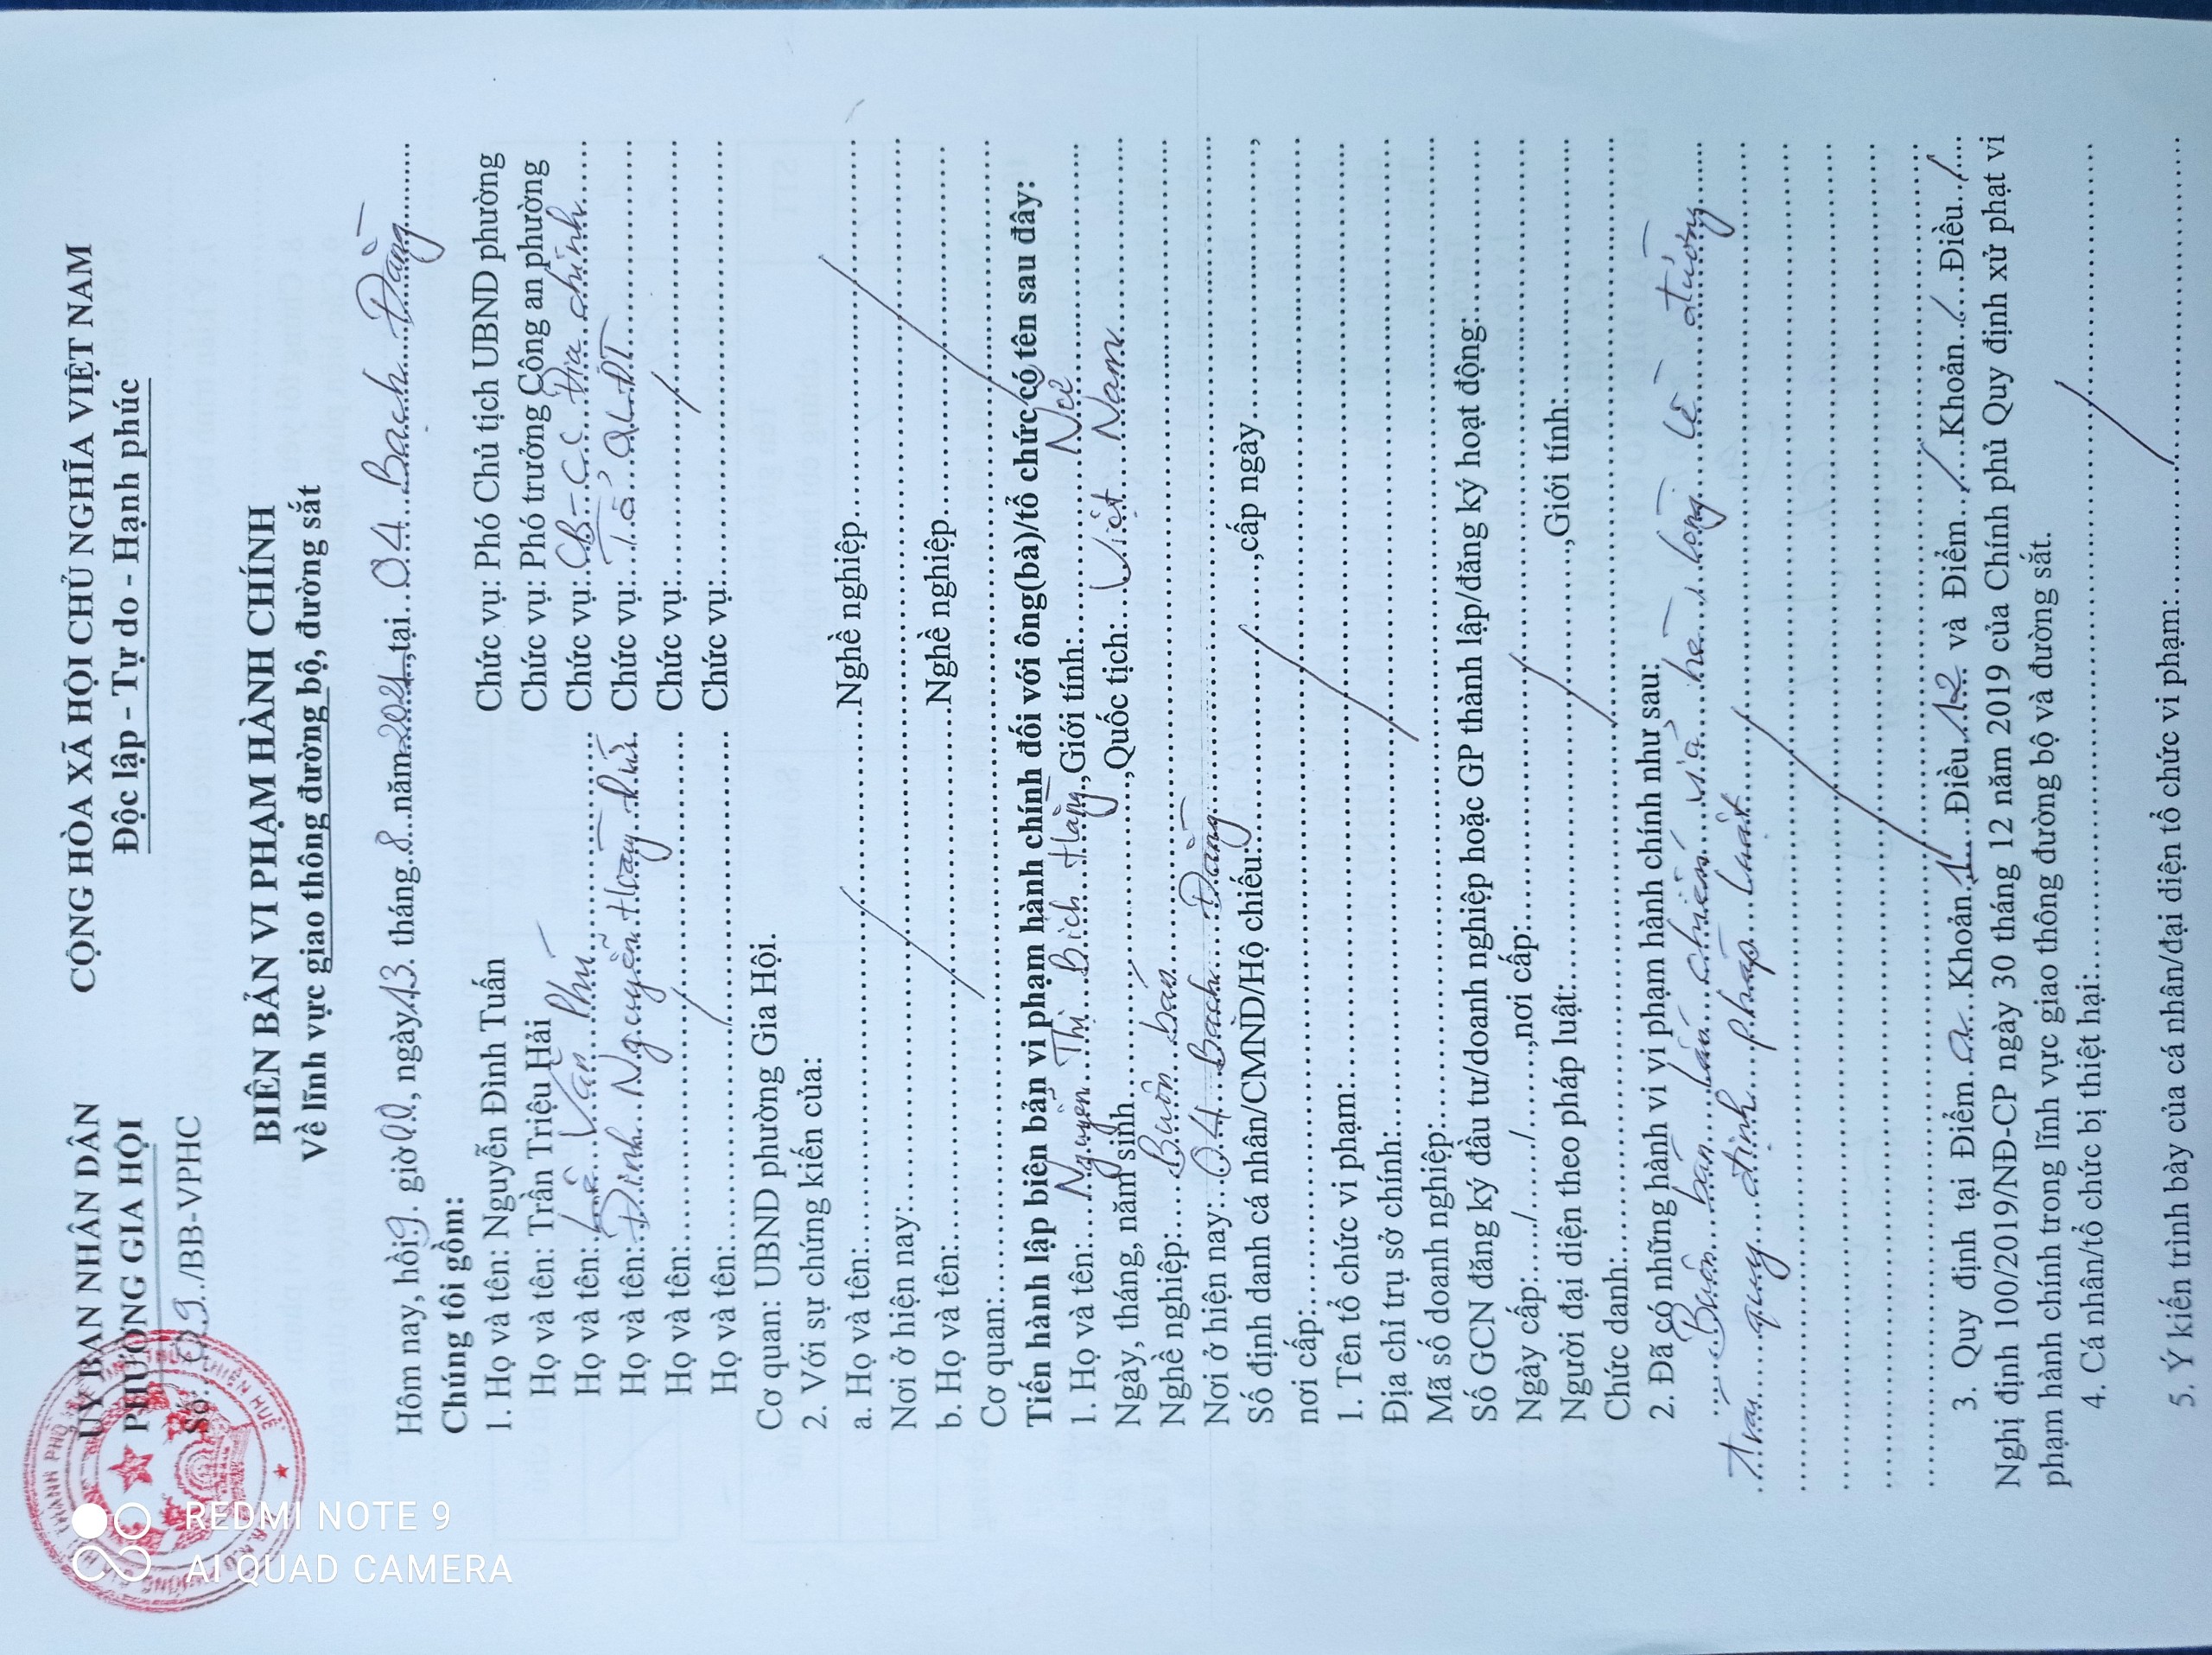 ỦY BAN NHÂN DÂN
PHƯỜNG GIA HỘI
Số: 09../BB-VPHC
CỘNG HÒA XÃ HỘI CHỦ NGHĨA VIỆT NAM
Độc lập - Tự do - Hạnh phúc
BIÊN BẢN VI PHẠM HÀNH CHÍNH
Về lĩnh vực giao thông đường bộ, đường sắt
Hôm nay, hồi 9. giờ 00, ngày 13. tháng 8...năm 2021, tại 04 Bạch Đằng
Chúng tôi gồm:
1. Họ và tên: Nguyễn Đình Tuấn Chức vụ: Phó Chủ tịch UBND phường
Họ và tên: Trần Triệu Hải Chức vụ: Phó trưởng Công an phường
Họ và tên: Lê Văn Phú Chức vụ: CB-CC Địa chính
Họ và tên: Đinh Nguyễn Hoàng Chức vụ: Tổ QLĐT
Họ và tên: Chức vụ:
Họ và tên: Chức vụ:
Cơ quan: UBND phường Gia Hội.
2. Với sự chứng kiến của:
a. Họ và tên: Nghề nghiệp
Nơi ở hiện nay:
b. Họ và tên: Nghề nghiệp
Cơ quan:
Tiến hành lập biên bản vi phạm hành chính đối với ông(bà)/tổ chức có tên sau đây:
1. Họ và tên: Nguyễn Thị Bích Hằng, Giới tính: Nữ
Ngày, tháng, năm sinh, Quốc tịch: Việt Nam
Nghề nghiệp: Buôn bán
Nơi ở hiện nay: 04 Bạch Đằng
Số định danh cá nhân/CMND/Hộ chiếu: ,cấp ngày ,
nơi cấp:
1. Tên tổ chức vi phạm:
Địa chỉ trụ sở chính:
Mã số doanh nghiệp:
Số GCN đăng ký đầu tư/doanh nghiệp hoặc GP thành lập/đăng ký hoạt động:
Ngày cấp:...../...../......,nơi cấp: ,Giới tính:
Người đại diện theo pháp luật:
Chức danh:
2. Đã có những hành vi vi phạm hành chính như sau:
Buôn bán lấn chiếm vỉa hè, lòng lề đường
trái quy định pháp luật
3. Quy định tại Điểm a Khoản 1 Điều 12 và Điểm / Khoản / Điều /
Nghị định 100/2019/NĐ-CP ngày 30 tháng 12 năm 2019 của Chính phủ Quy định xử phạt vi
phạm hành chính trong lĩnh vực giao thông đường bộ và đường sắt.
4. Cá nhân/tổ chức bị thiệt hại:
5. Ý kiến trình bày của cá nhân/đại diện tổ chức vi phạm:
REDMI NOTE 9
AI QUAD CAMERA